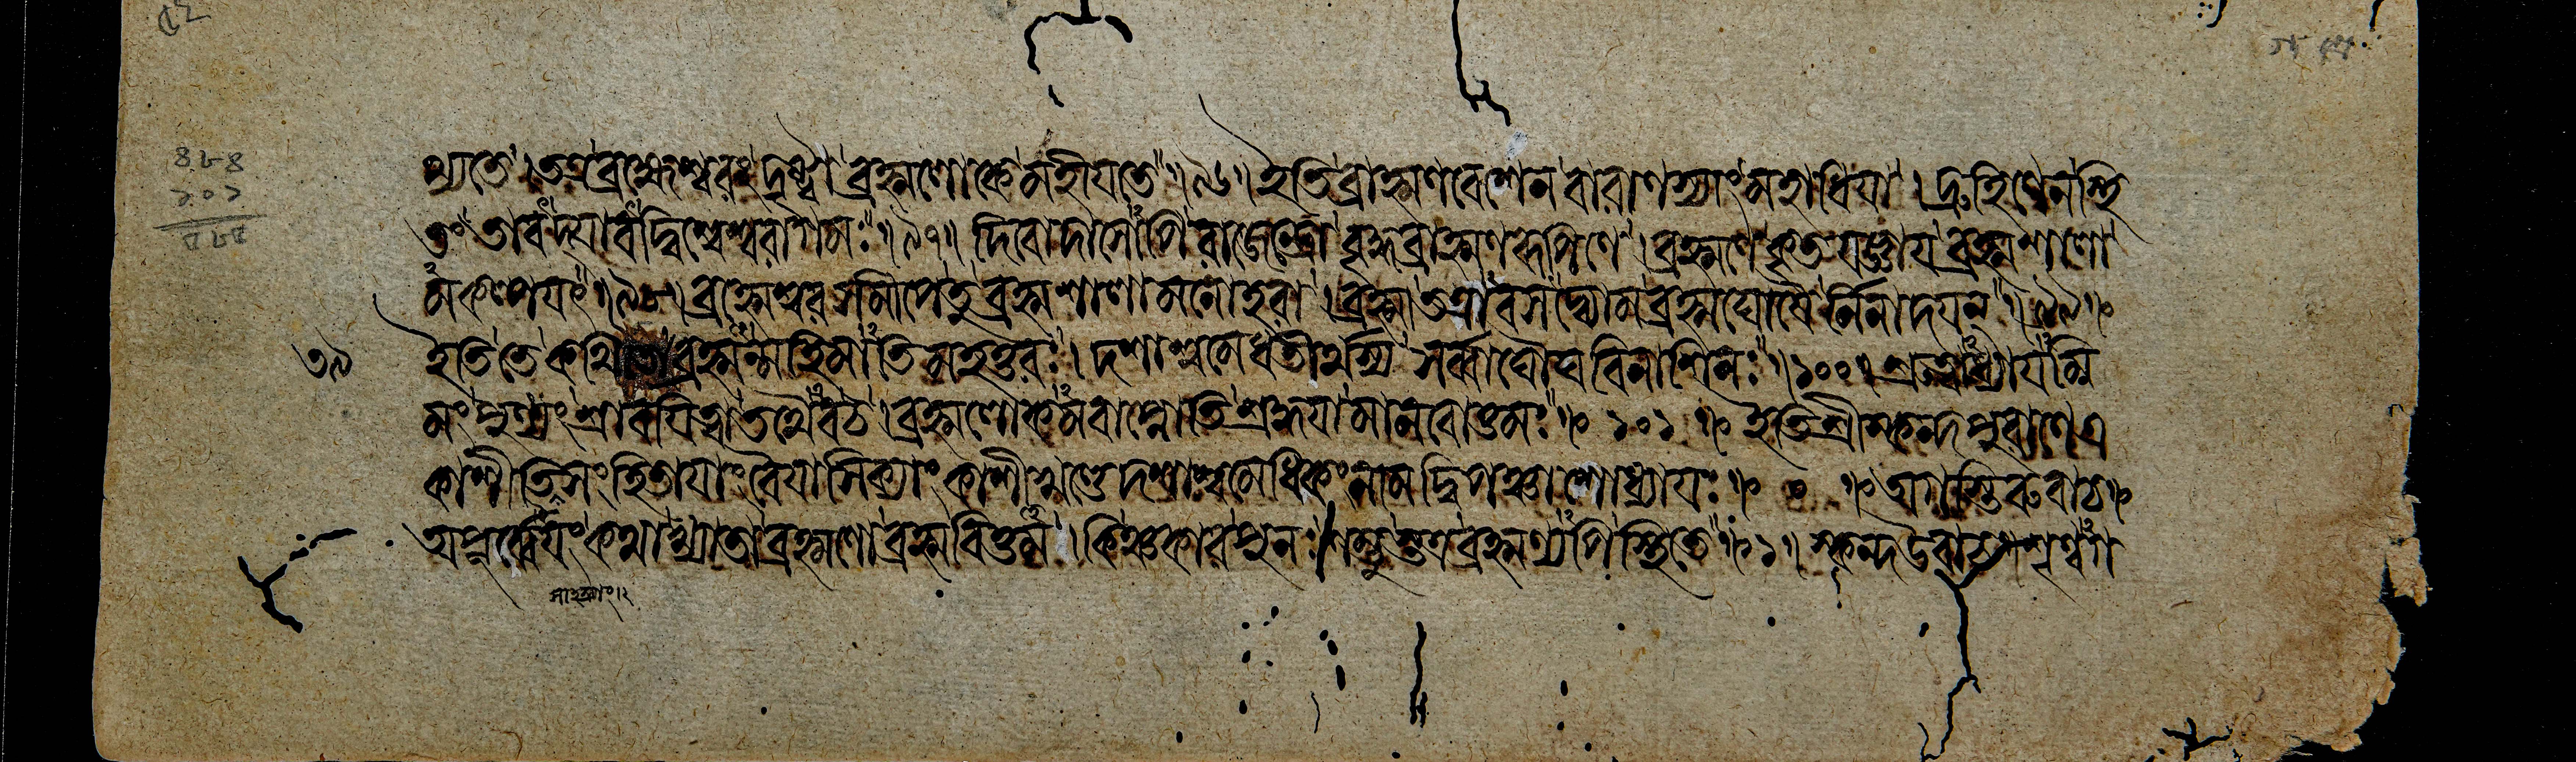 থ্যতে । তত্র ব্রহ্মেশ্বরং দৃষ্ট্বা ব্রহ্মলোকে মহীয়তে ॥ ৯৬ ॥ ইতি ব্রাহ্মণবেশেন বারাণস্যাং মহাধিয়া । দ্রুহিণেন স্থি
তং তাবদ্যাবদ্বিশ্বেশ্বরাগমঃ ॥ ৯৭ ॥ দিবোদাসোপি রাজেন্দ্রো বৃদ্ধব্রাহ্মণরূপিণে । ব্রহ্মণে কৃতযজ্ঞায় ব্রহ্মশালা
মকল্পয়ৎ ॥ ৯৮ ॥ ব্রহ্মেশ্বরসমীপে তু ব্রহ্মশালা মনোহরা । ব্রহ্মা তত্রাবসদ্ব্যোম ব্রহ্মঘোষৈর্নিনাদয়ন্ ॥ ৯৯ ॥
৩৯
ইতি তে কথিতো ব্রহ্মন্মহিমাতিমহত্তরঃ । দশাশ্বমেধতীর্থস্য সর্ব্বাঘৌঘবিনাশিনঃ ॥ ১০০ ॥ শ্রুত্বাধ্যায়মি
মং পুণ্যং শ্রাবয়িত্বা তথৈব চ । ব্রহ্মলোকমবাপ্নোতি শ্রদ্ধয়া মানবোত্তমঃ ॥ ১০১ ॥ ইতি শ্রীস্কন্দপুরাণে এ
কাশীতিসংহিতায়াং বৈয়াসিক্যাং কাশীখণ্ডে দশাশ্বমেধিকং নাম দ্বিপঞ্চাশোধ্যায়ঃ ॥ ০ ॥ অগস্তিরুবাচ ॥
অপূর্ব্বেয়ং কথা খ্যাতা ব্রহ্মণো ব্রহ্মবিত্তম । কিঞ্চকার পুনঃ শম্ভুস্তত্র ব্রহ্মণ্যপি স্থিতে ॥ ১ ॥ স্কন্দ উবাচ শৃণ্বগ
৪৮৪
১০১
৫৮৫